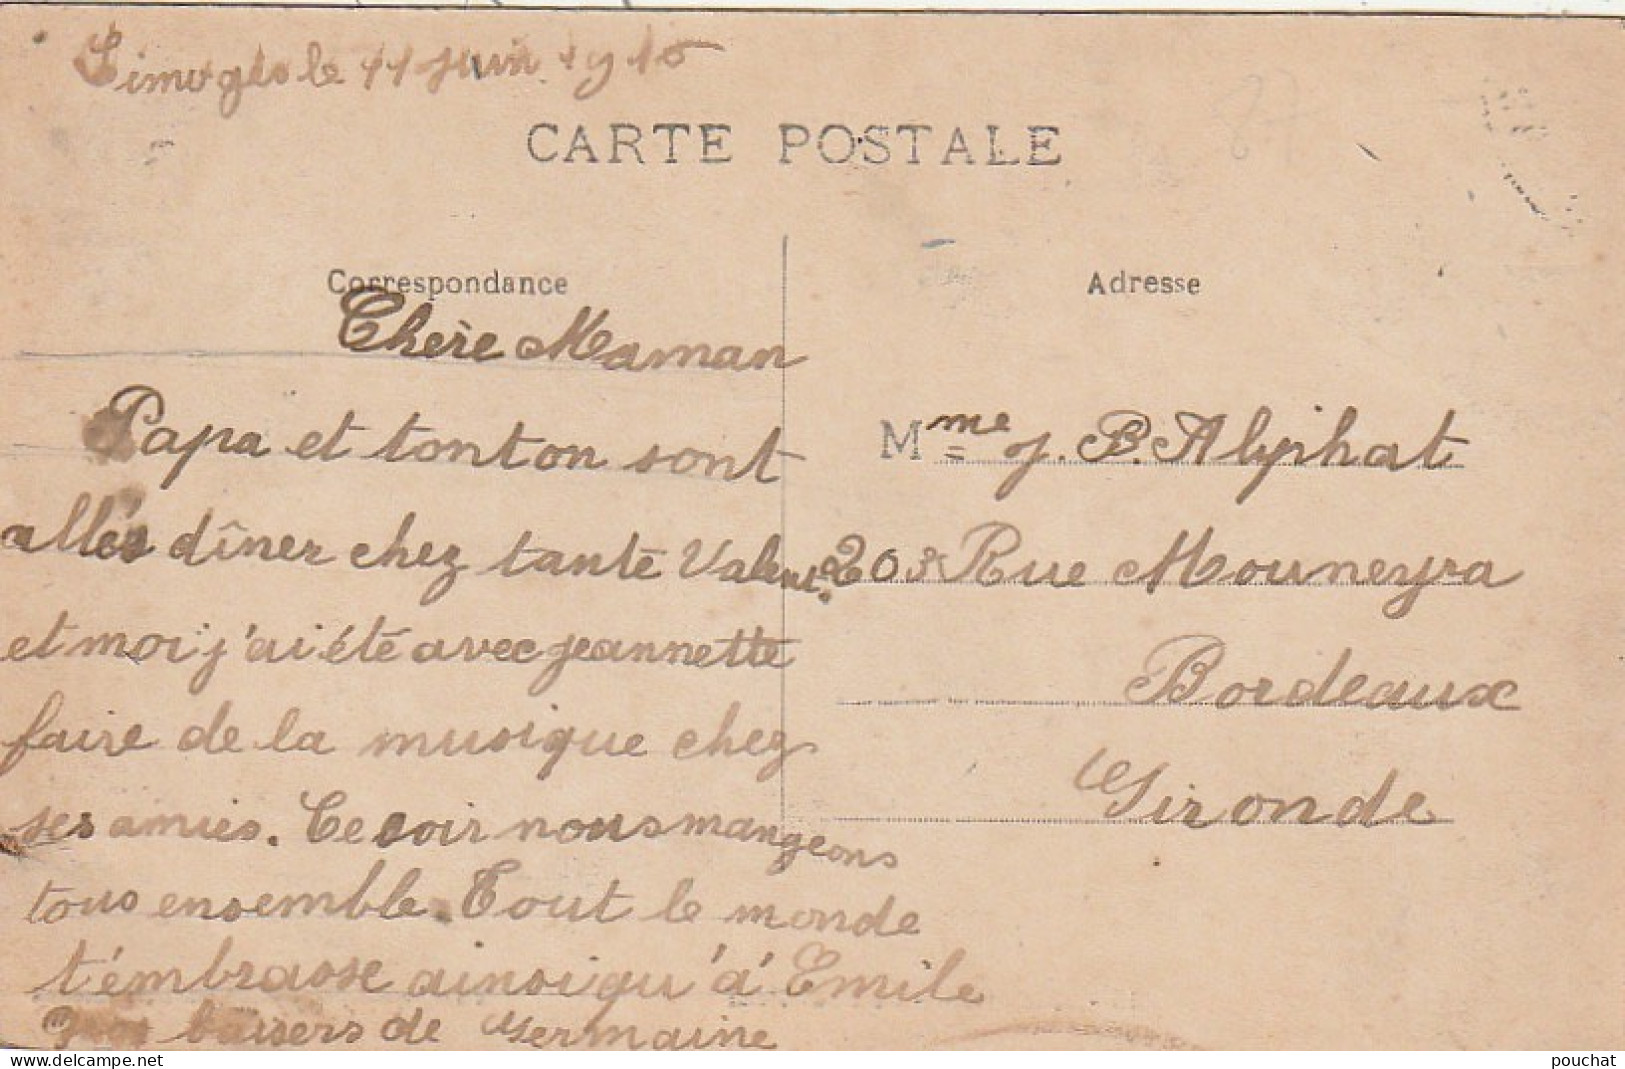 Limoges le 11 juin 1915
87
CARTE POSTALE
Correspondance
Chère Maman
Papa et tonton sont
allés dîner chez tante Valent.
et moi j'ai été avec jeannette
faire de la musique chez
ses amies. Ce soir nous mangeons
tous ensemble. Tout le monde
t'émbrasse ainsi qu'à Emile
baisers de Germaine
Adresse
Mme J. B. Alyphat
20 Rue Mouneyra
Bordeaux
Gironde
www.delcampe.net
pouchat